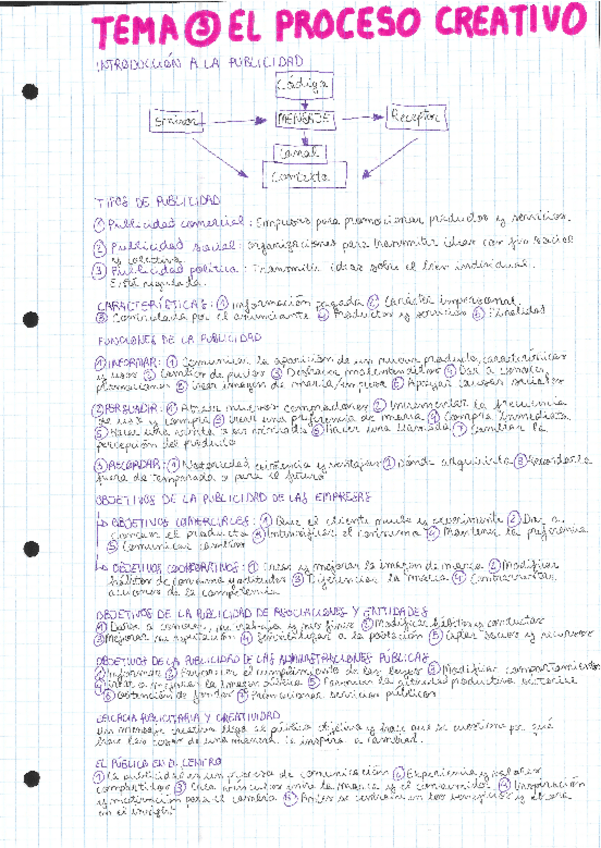 TEMA 3 EL PROCESO CREATIVO
INTRODUCCIÓN A LA PUBLICIDAD
Código
Emisor
MENSAJE
Receptor
Canal
Contexto
TIPOS DE PUBLICIDAD
① Publicidad comercial: Empresas para promocionar productos y servicios.
② Publicidad social: organizaciones para transmitir ideas con fin social
y colectiva.
③ Publicidad política: Transmitir ideas sobre el bien individual.
Está regulada.
CARACTERÍSTICAS: ① Información pagada ② Carácter impersonal
③ Controlada por el anunciante ④ Productos y servicios ⑤ Finalidad
FUNCIONES DE LA PUBLICIDAD
① INFORMAR: ① Comunicar la aparición de un nuevo producto, características
y usos ② Cambios de precios ③ Deshacer malentendidos ④ Dar a conocer
promociones ⑤ Crear imagen de marca/empresa ⑥ Apoyar causas sociales
② PERSUADIR: ① Atraer nuevos compradores ② Incrementar la frecuencia
de uso y compra ③ Crear una preferencia de marca ④ Compra inmediata
⑤ Hacer una visita o ser visitado ⑥ Hacer una llamada ⑦ Cambiar la
percepción del producto
③ RECORDAR: ① Notoriedad existencia y ventajas ② Dónde adquirirlo ③ Recordarlo
fuera de temporada o para el futuro
OBJETIVOS DE LA PUBLICIDAD DE LAS EMPRESAS
↳ OBJETIVOS COMERCIALES: ① Que el cliente pruebe y experimente ② Dar a
conocer el producto ③ Intensificar el consumo ④ Mantener la preferencia
⑤ Comunicar cambios
↳ OBJETIVOS CORPORATIVOS: ① Crear y mejorar la imagen de marca ② Modificar
hábitos de consumo y actitudes ③ Diferenciar la marca ④ Contrarrestar
acciones de la competencia
OBJETIVOS DE LA PUBLICIDAD DE ASOCIACIONES Y ENTIDADES
① Darse a conocer, su trabajo y sus fines ② Modificar hábitos y conductas
③ Mejorar su aceptación ④ Sensibilizar a la población ⑤ Captar socios y recursos
OBJETIVOS DE LA PUBLICIDAD DE LAS ADMINISTRACIONES PÚBLICAS
① Informar ② Favorecer el cumplimiento de las leyes ③ Modificar comportamientos
④ Crear o mejorar la imagen pública ⑤ Favorecer la actividad productiva
⑥ Obtención de fondos ⑦ Promocionar servicios públicos
EFICACIA PUBLICITARIA Y CREATIVIDAD
Un mensaje creativo llega al público objetivo y hace que se cuestione por qué
hace las cosas de una manera. Te inspira a cambiar.
EL PÚBLICO EN EL CENTRO
① La publicidad es un proceso de comunicación ② Experiencia y valores
compartidos ③ Crea vínculos entre la marca y el consumidor ④ Inspiración
y motivación para el cambio ⑤ Antes se centraba en los beneficios y ahora
en el insight